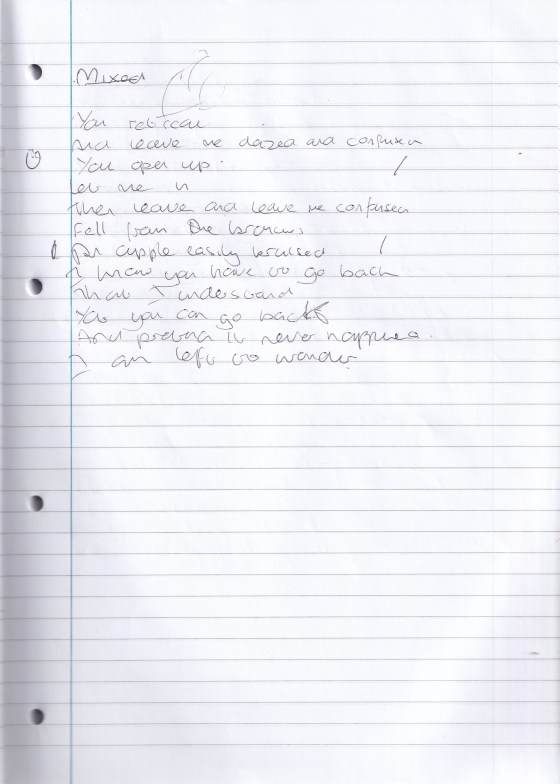 Mixed
You
And leave me dazed and confused
You open up
Let me in
Then leave and leave me confused
Fell from the branches
An apple easily bruised
I know you have to go back
That I understand
Yet you can go back
And pretend it never happened.
I am left to wonder